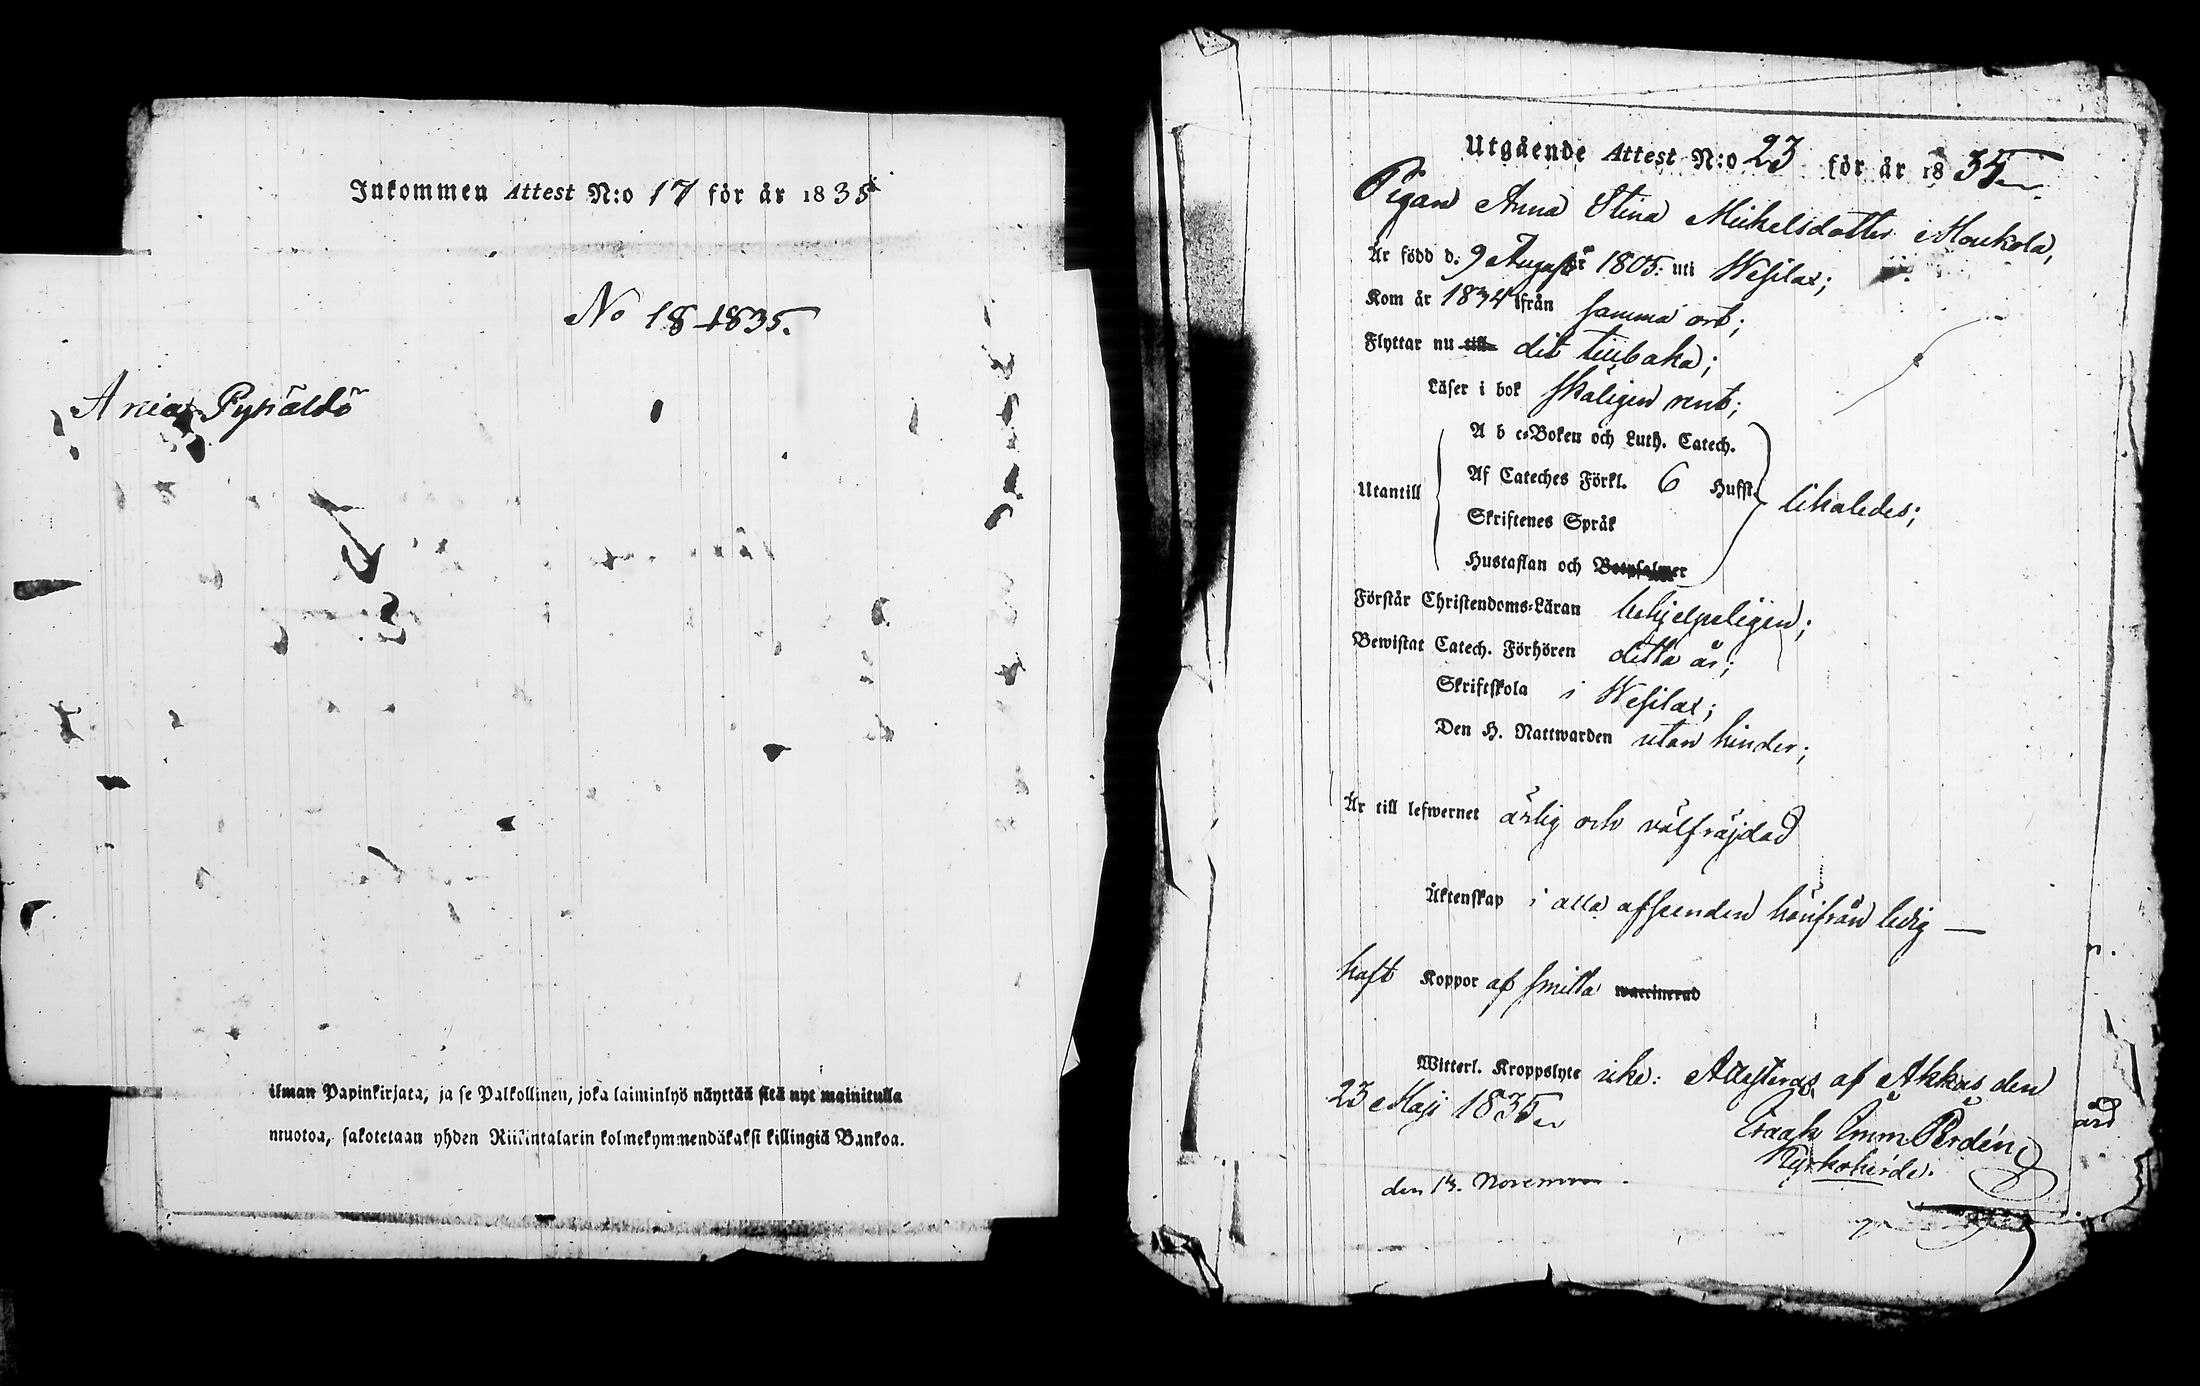 Inkommen Attest N:o 17 för år 1835
No 18 1835.
Pyhäldö
ilman Papinkirjata, ja se Palkollinen, joka laiminlyö näyttää sitä nyt mainitulla
muotoa, sakotetaan yhden Riikintalarin kolmekymmendäkaksi killingiä Bankoa.
Utgående Attest N:o 23 för år 1835
Pigan Anna Stina Michelsdotter i Moukola,
Är född d. 9 Augusti 1805: uti Wesilax;
Kom år 1834 ifrån samma ort;
Flyttar nu till dit tillbaka;
Läser i bok skäligen rent;
A b c-Boken och Luth. Catech.
Utantill Af Cateches Förkl. 6 Hufst. likaledes;
Skriftenes Språk
Hustaflan och Botpsalmer
Förstår Christendoms-Läran behjelpeligen;
Bewistat Catech. Förhören detta år;
Skriftskola i Wesilax;
Den H. Nattwarden utan hinder;
Är till lefwernet ärlig och välfräjdad
Äktenskap i alla afseenden härifrån ledig —
haft Koppor af smitta waccinerad
Witterl. Kroppslyte icke: Attesteras af Akkas den
23 Maji 1835
Isaak Imm Perdén
Kyrkoherde.
den 13. November